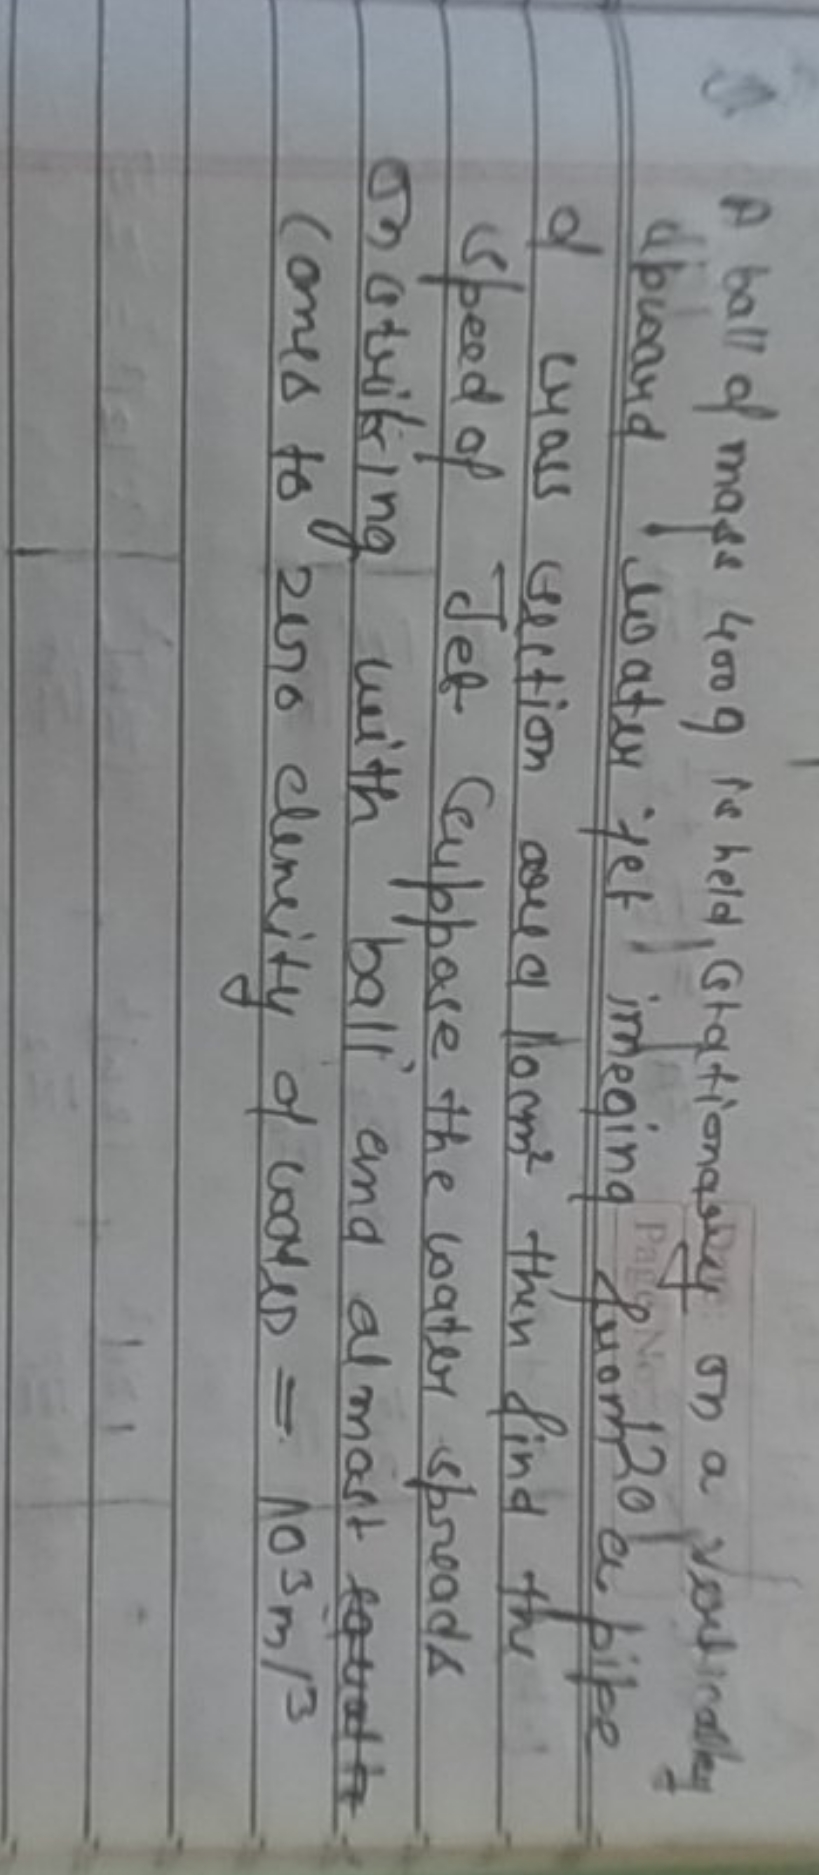 A ball of mass 400g is held stationary on a vertically
upward water jet imeging from a pipe
of cross section area 10cm² then find the
speed of Jet Supphose the water spreads
on striking with ball and almost
comes to zero density of water = 10³m/3
Page No
120